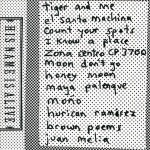 HIS NAME IS ALIVE
tiger and me
el santo machina
count your spots
I know a place
zona centro CP 3700
moon don't go
honey moon
maya palenque
mono
hurican ramirez
brown poems
juan melia